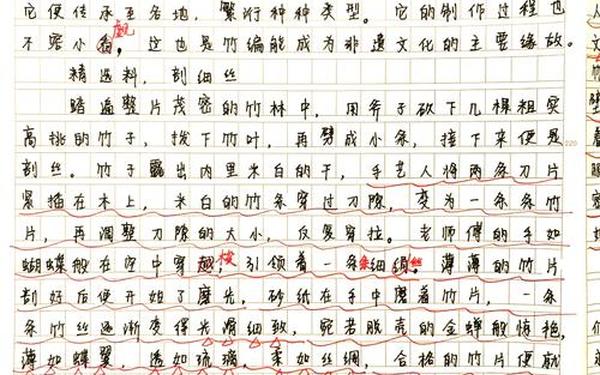 它便传承至各地，繁衍种种类型。它的制作过程也
不容小觑，这也是竹编能成为非遗文化的主要缘故。
精选料，剖细丝
踏遍整片茂密的竹林中，用斧子砍下几棵粗实
高挑的竹子，拔下竹叶，再劈成小条，接下来便是
剖丝。竹子露出内里米白的干，手艺人将两条刀片
紧插在木上，米白的竹条穿过刀隙，变为一条条竹
片，再调整刀隙的大小，反复穿拉。老师傅的手如
蝴蝶般在空中穿梭，引领着一条条细丝。薄薄的竹片
刮好后便开始了磨光，砂纸在手中磨着竹片，一条
条竹丝逐渐变得光滑细致，宛若脱壳的金蝉般惊艳，
薄如蝶翼，透如琉璃，柔如丝绸，合格的竹片便就